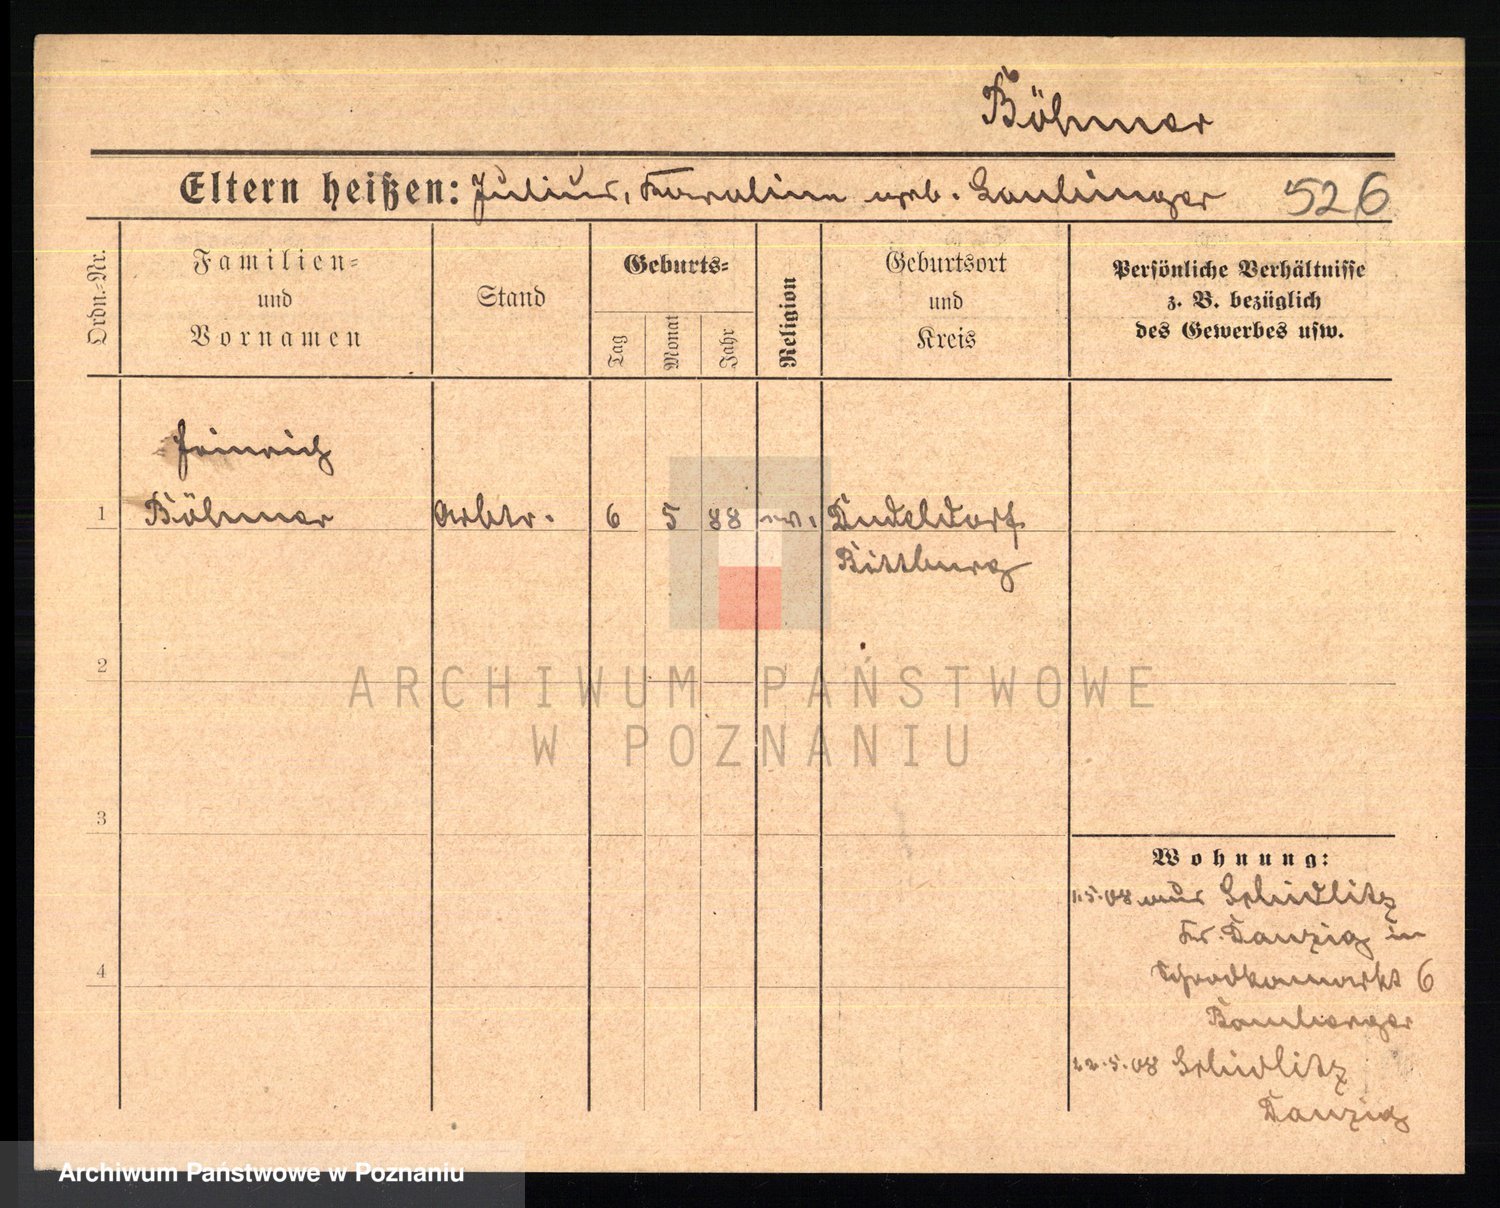 Böhmer
Eltern heißen: Julius, Karoline geb. 526
Ordn.-Nr.
Familien-
und
Vornamen
Stand
Geburts-
Tag
Monat
Jahr
Religion
Geburtsort
und
Kreis
Persönliche Verhältnisse
z. B. bezüglich
des Gewerbes usw.
Heinrich
1 Böhmer Arbtr. 6 5 88 ev. Dudeldorf
Bittburg
2
ARCHIWUM PAŃSTWOWE
W POZNANIU
3
Wohnung:
1.5.08 aus Schidlitz
Kr. Danzig in
4
Schrodkamarkt 6
Bamberger
22.5.08 Schidlitz
Danzig
Archiwum Państwowe w Poznaniu